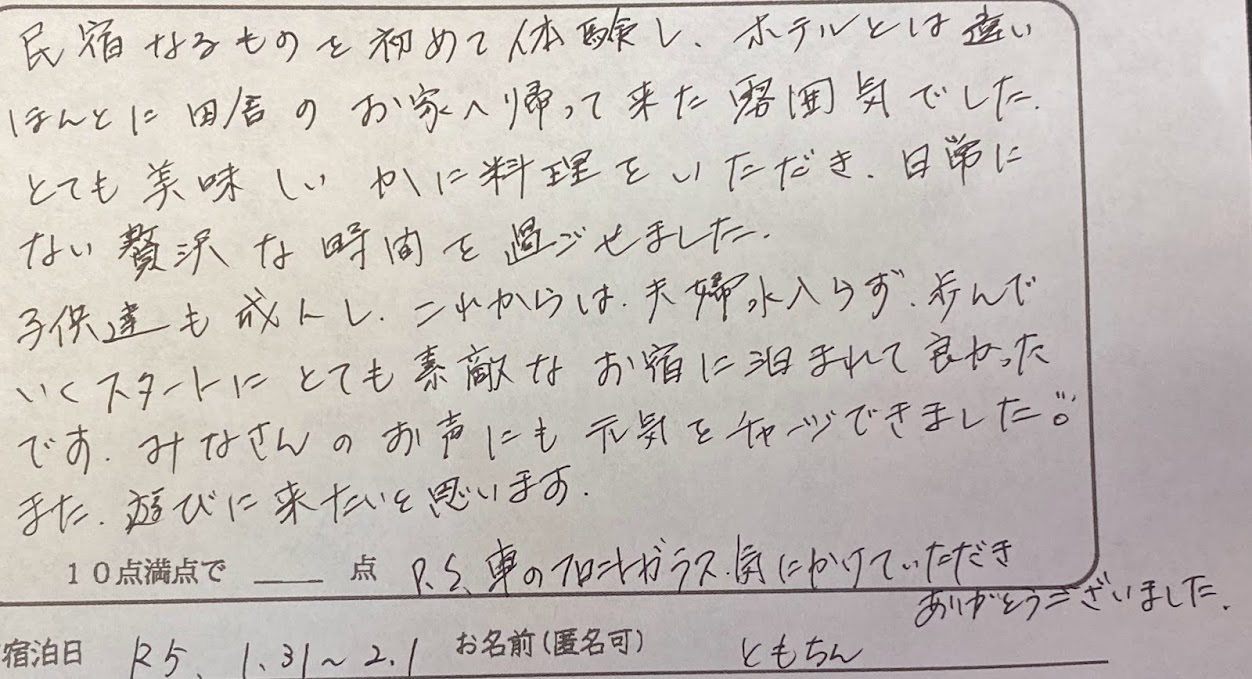 民宿なるものを初めて体験し、ホテルとは違い
ほんとに田舎のお家へ帰って来た雰囲気でした.
とても美味しいかに料理をいただき、日常に
ない贅沢な時間を過ごせました.
子供達も成人し、これからは、夫婦水入らず、歩んで
いくスタートにとても素敵なお宿に泊まれて良かった
です.みなさんのお声にも元気をチャージできました。
また、遊びに来たいと思います.
10点満点で ___ 点 P.S.車のフロントガラス、気にかけていただき
ありがとうございました.
宿泊日 R5、1.31~2.1 お名前(匿名可) ともちん